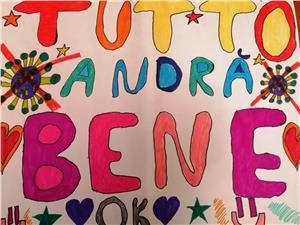 TUTTO
ANDRÃ
BENE
OK